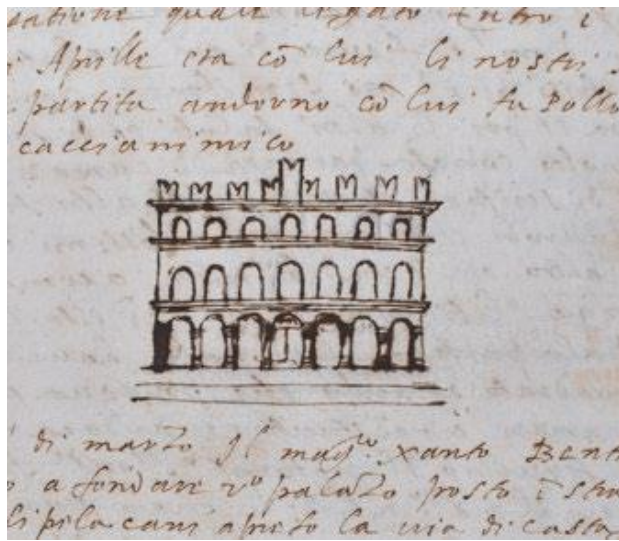 quale Entro i
Aprille era cō lui li nostri
partita andorno cō lui fu Pollo
cacciani mico
di marzo Jl mag.co xanto Bent
a fondare palazo posto ī stra
pilacani apreſo la uia di casta